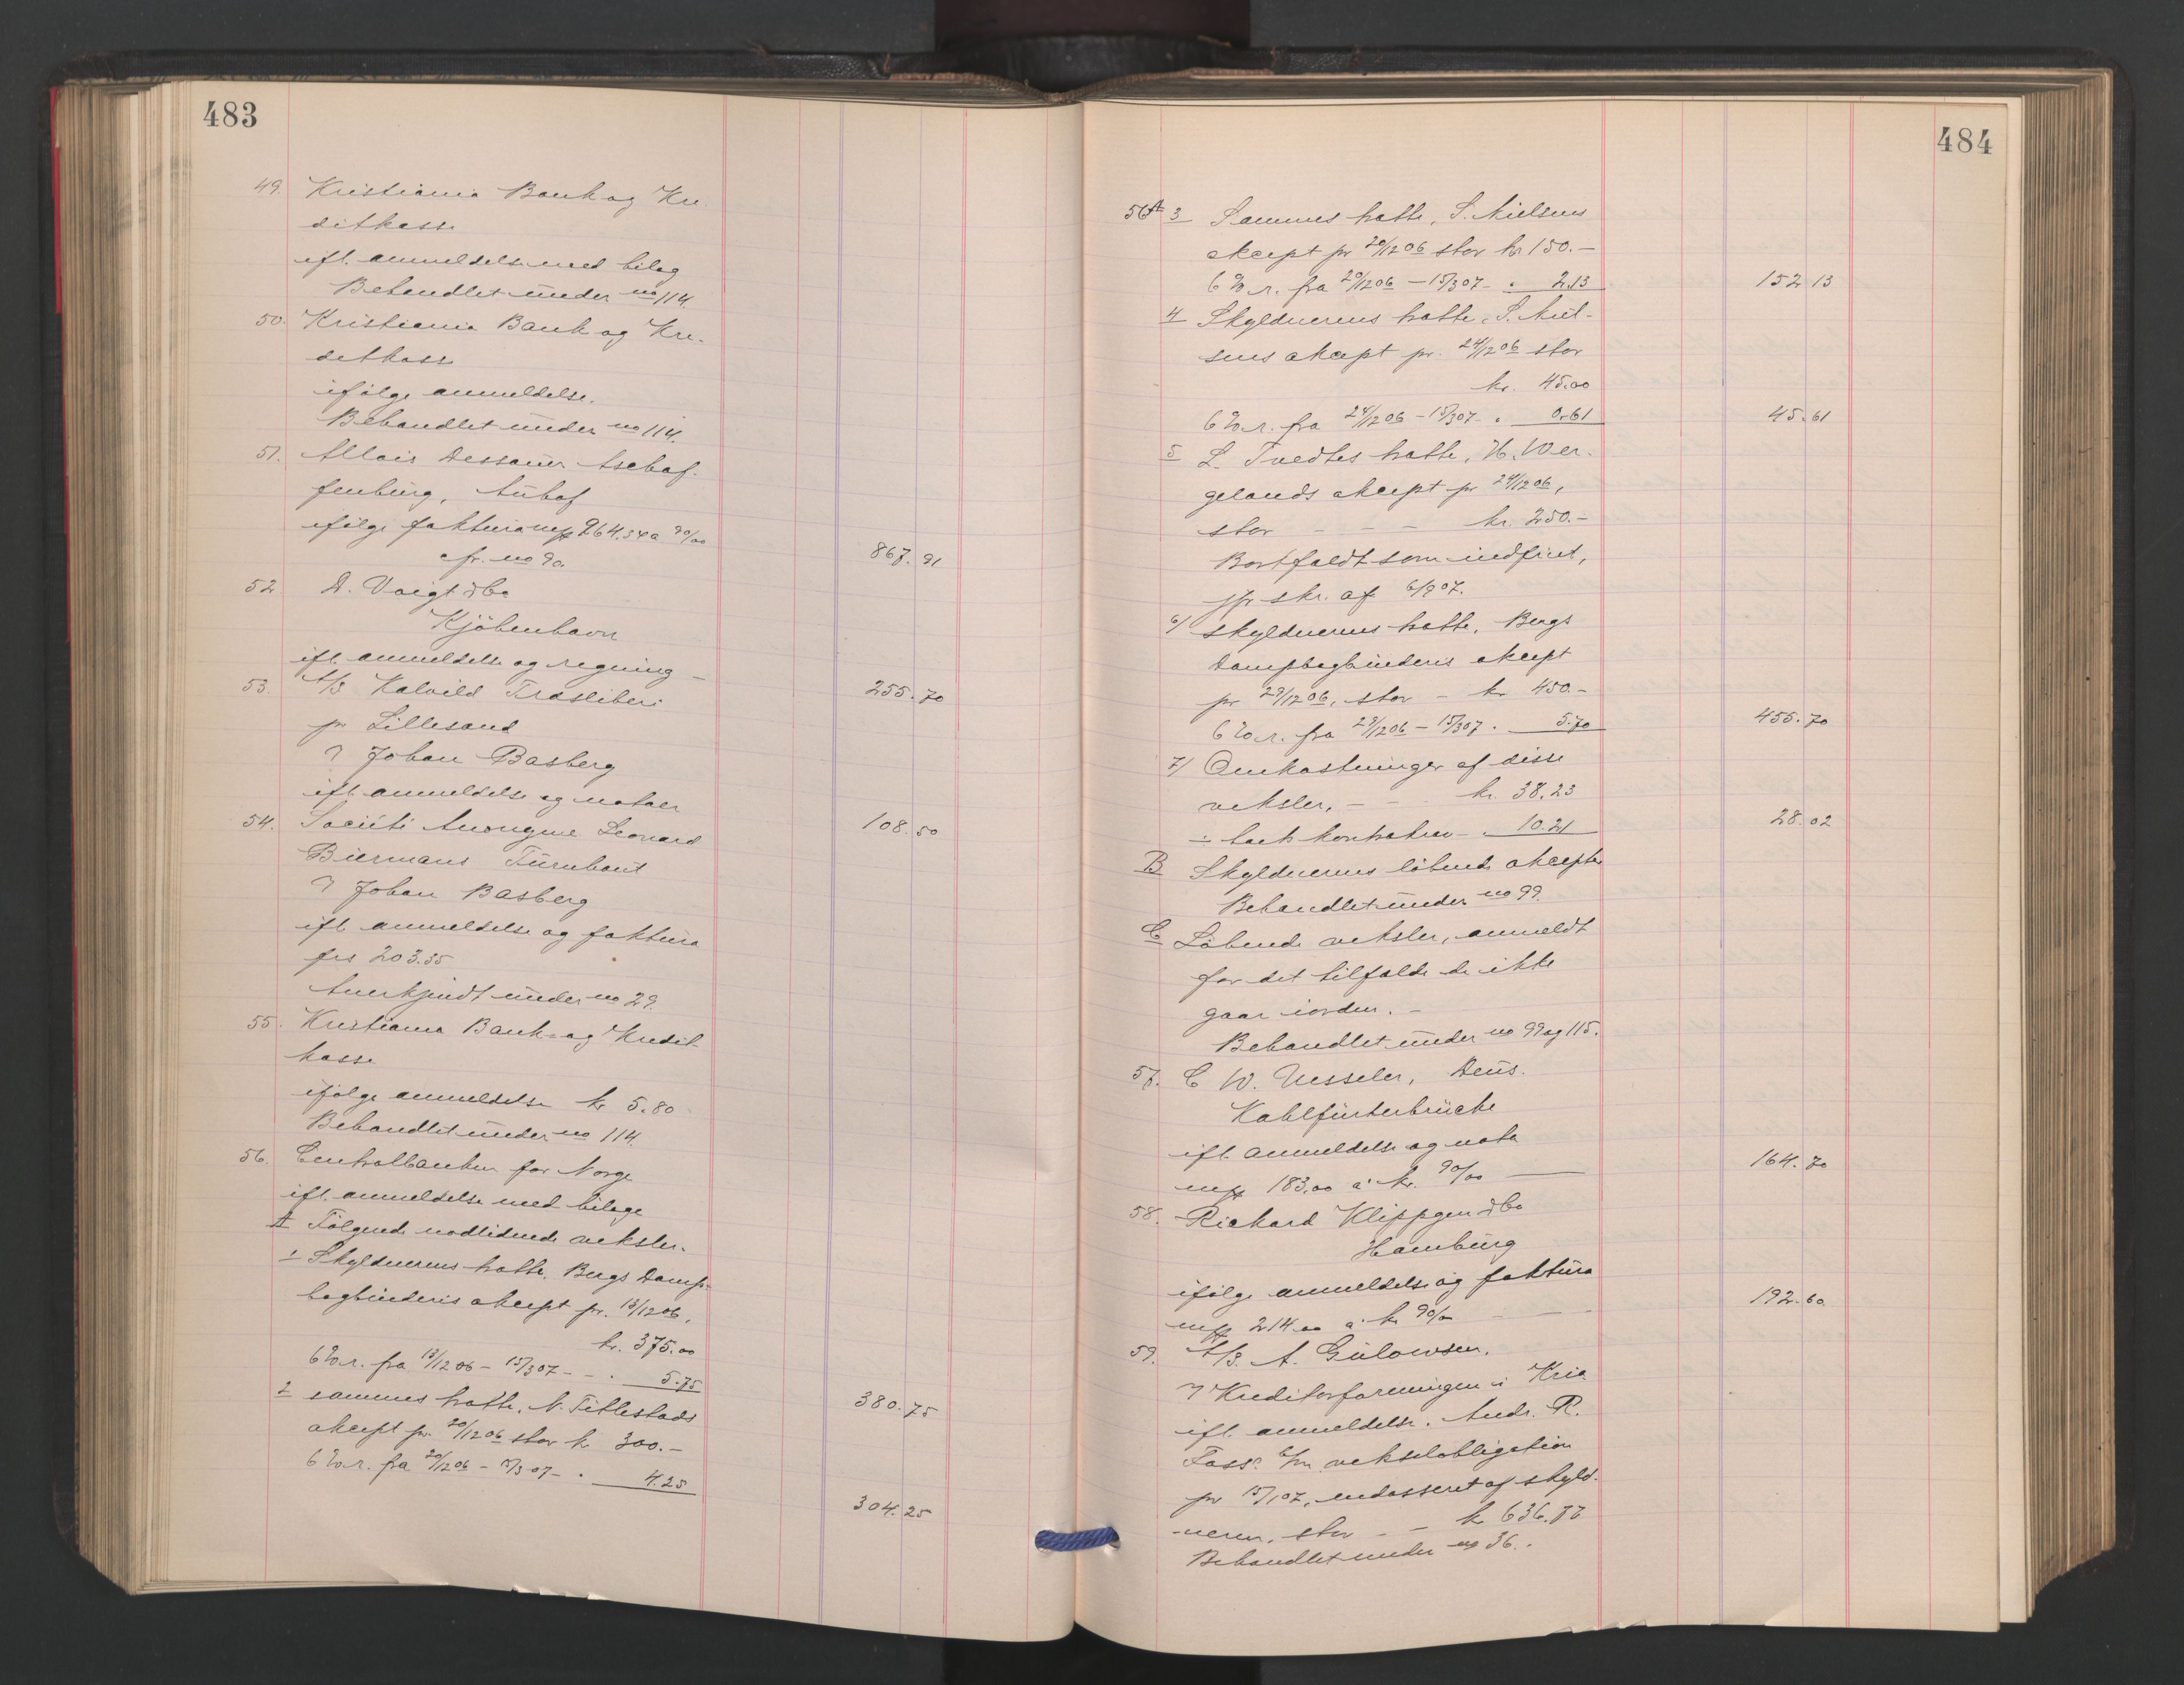 483
49. Kristiania Bank og Kre-
ditkasse
ifl. anmeldelse med bilag
Behandlet under no 114.
50. Kristiania Bank og Kre-
ditkasse
ifølge anmeldelse.
Behandlet under no 114.
51. Alois Dessauer Aschaf-
fenburg,
ifølge faktura mk 964.34 a 90/00 867.91
cfr. no 90.
52. D. Voigt & Co
Kjöbenhavn
ifl. anmeldelse og regning - 255.70
53. A/S Kalvild Træsliberi
pr Lillesand
v Johan Basberg
ifl. anmeldelse og notaer 108.50
54. Société Anonyme Leonard
Biermans Turnhout
v Johan Basberg
ifl. anmeldelse og faktura
frs 203.35
Anerkjendt under no 29.
55. Kristiania Bank- og Kredit-
kasse
ifølge anmeldelse kr 5.80
Behandlet under no 114.
56. Centralbanken for Norge
ifl. anmeldelse med bilage
A Følgende nødlidende veksler.
1 Skyldnerens tratte, Bergs Damp-
bogbinderis aksept pr. 13/12 06,
kr. 375.00
6 % r. fra 13/12 06 - 15/3 07 - - 5.75 380.75
2 sammes tratte, N. Tillestads
aksept pr. 20/12 06 stor kr 300.-
6 % r. fra 20/12 06 - 15/3 07 - 4.25 304.25
484
56 A 3 Sammes tratte, S. Nielsens
aksept pr 20/12 06 stor kr 150.-
6 % r. fra 20/12 06 - 15/3 07 - 2.13 152.13
4 Skyldnerens tratte, S. Niel-
sens aksept pr. 24/12 06 stor
kr. 45.00
6 % r. fra 24/12 06 - 15/3 07 - 0.61 45.61
5 L. Tvedtes tratte, H. Wer-
gelands aksept pr 24/12 06,
stor - - - kr. 250.-
Bortfaldt som indfriet,
jfr skr. af 6/9 07.
6/ skyldnerens tratte, Bergs
Dampbogbinderis aksept
pr 29/12 06, stor - kr 450.-
6 % r. fra 29/12 06 - 15/3 07 . 5.70 455.70
7/ Omkostninger af disse
veksler, - - kr. 38.23
÷ 10.21 28.02
B Skyldnerens løbende aksepter
Behandlet under no 99.
C Løbende veksler, anmeldt
for det tilfælde de ikke
gaar iorden. -
Behandlet under no 99 og 115.
57. C W. Uesseler, Deus.
Kohlfurterbrücke
ifl. anmeldelse og nota
mk 183.00 a' kr. 90/00 164.70
58. Richard Klippgen & Co
Hamburg
ifølge anmeldelse og faktura
mk 214.00 a' kr 90/00 192.60
59. A/S. A. Gulowsen.
v Kreditorforeningen i Kria
ifl. anmeldelse. Andr. R.
Foss. vekselobligation
pr 15/1 07, endosseret af skyld-
neren, stor - - kr 636.77
Behandlet under no 36.